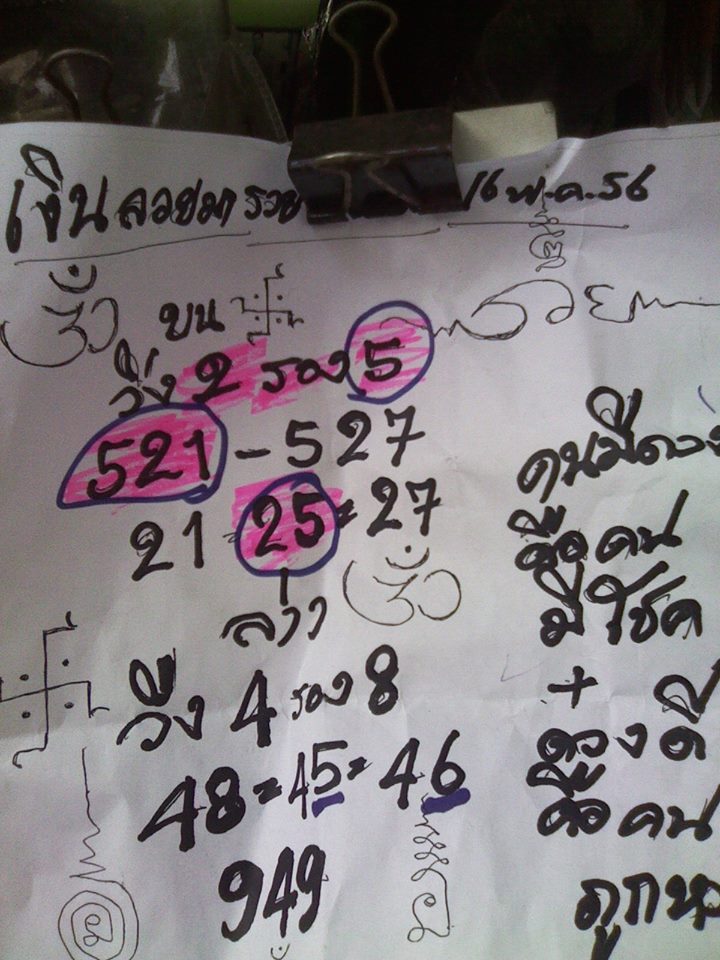 เงินลอยมา รวย 16 พ.ค.56
รวย
บน
วิ่ง 2 รอง 5
521 - 527
21 - 25 = 27
ล่าง
วิ่ง 4 รอง 8
48 = 45 = 46
949
คนมีดวง
คือคน
มีโชค
+
ดวงดี
คือคน
ถูกห